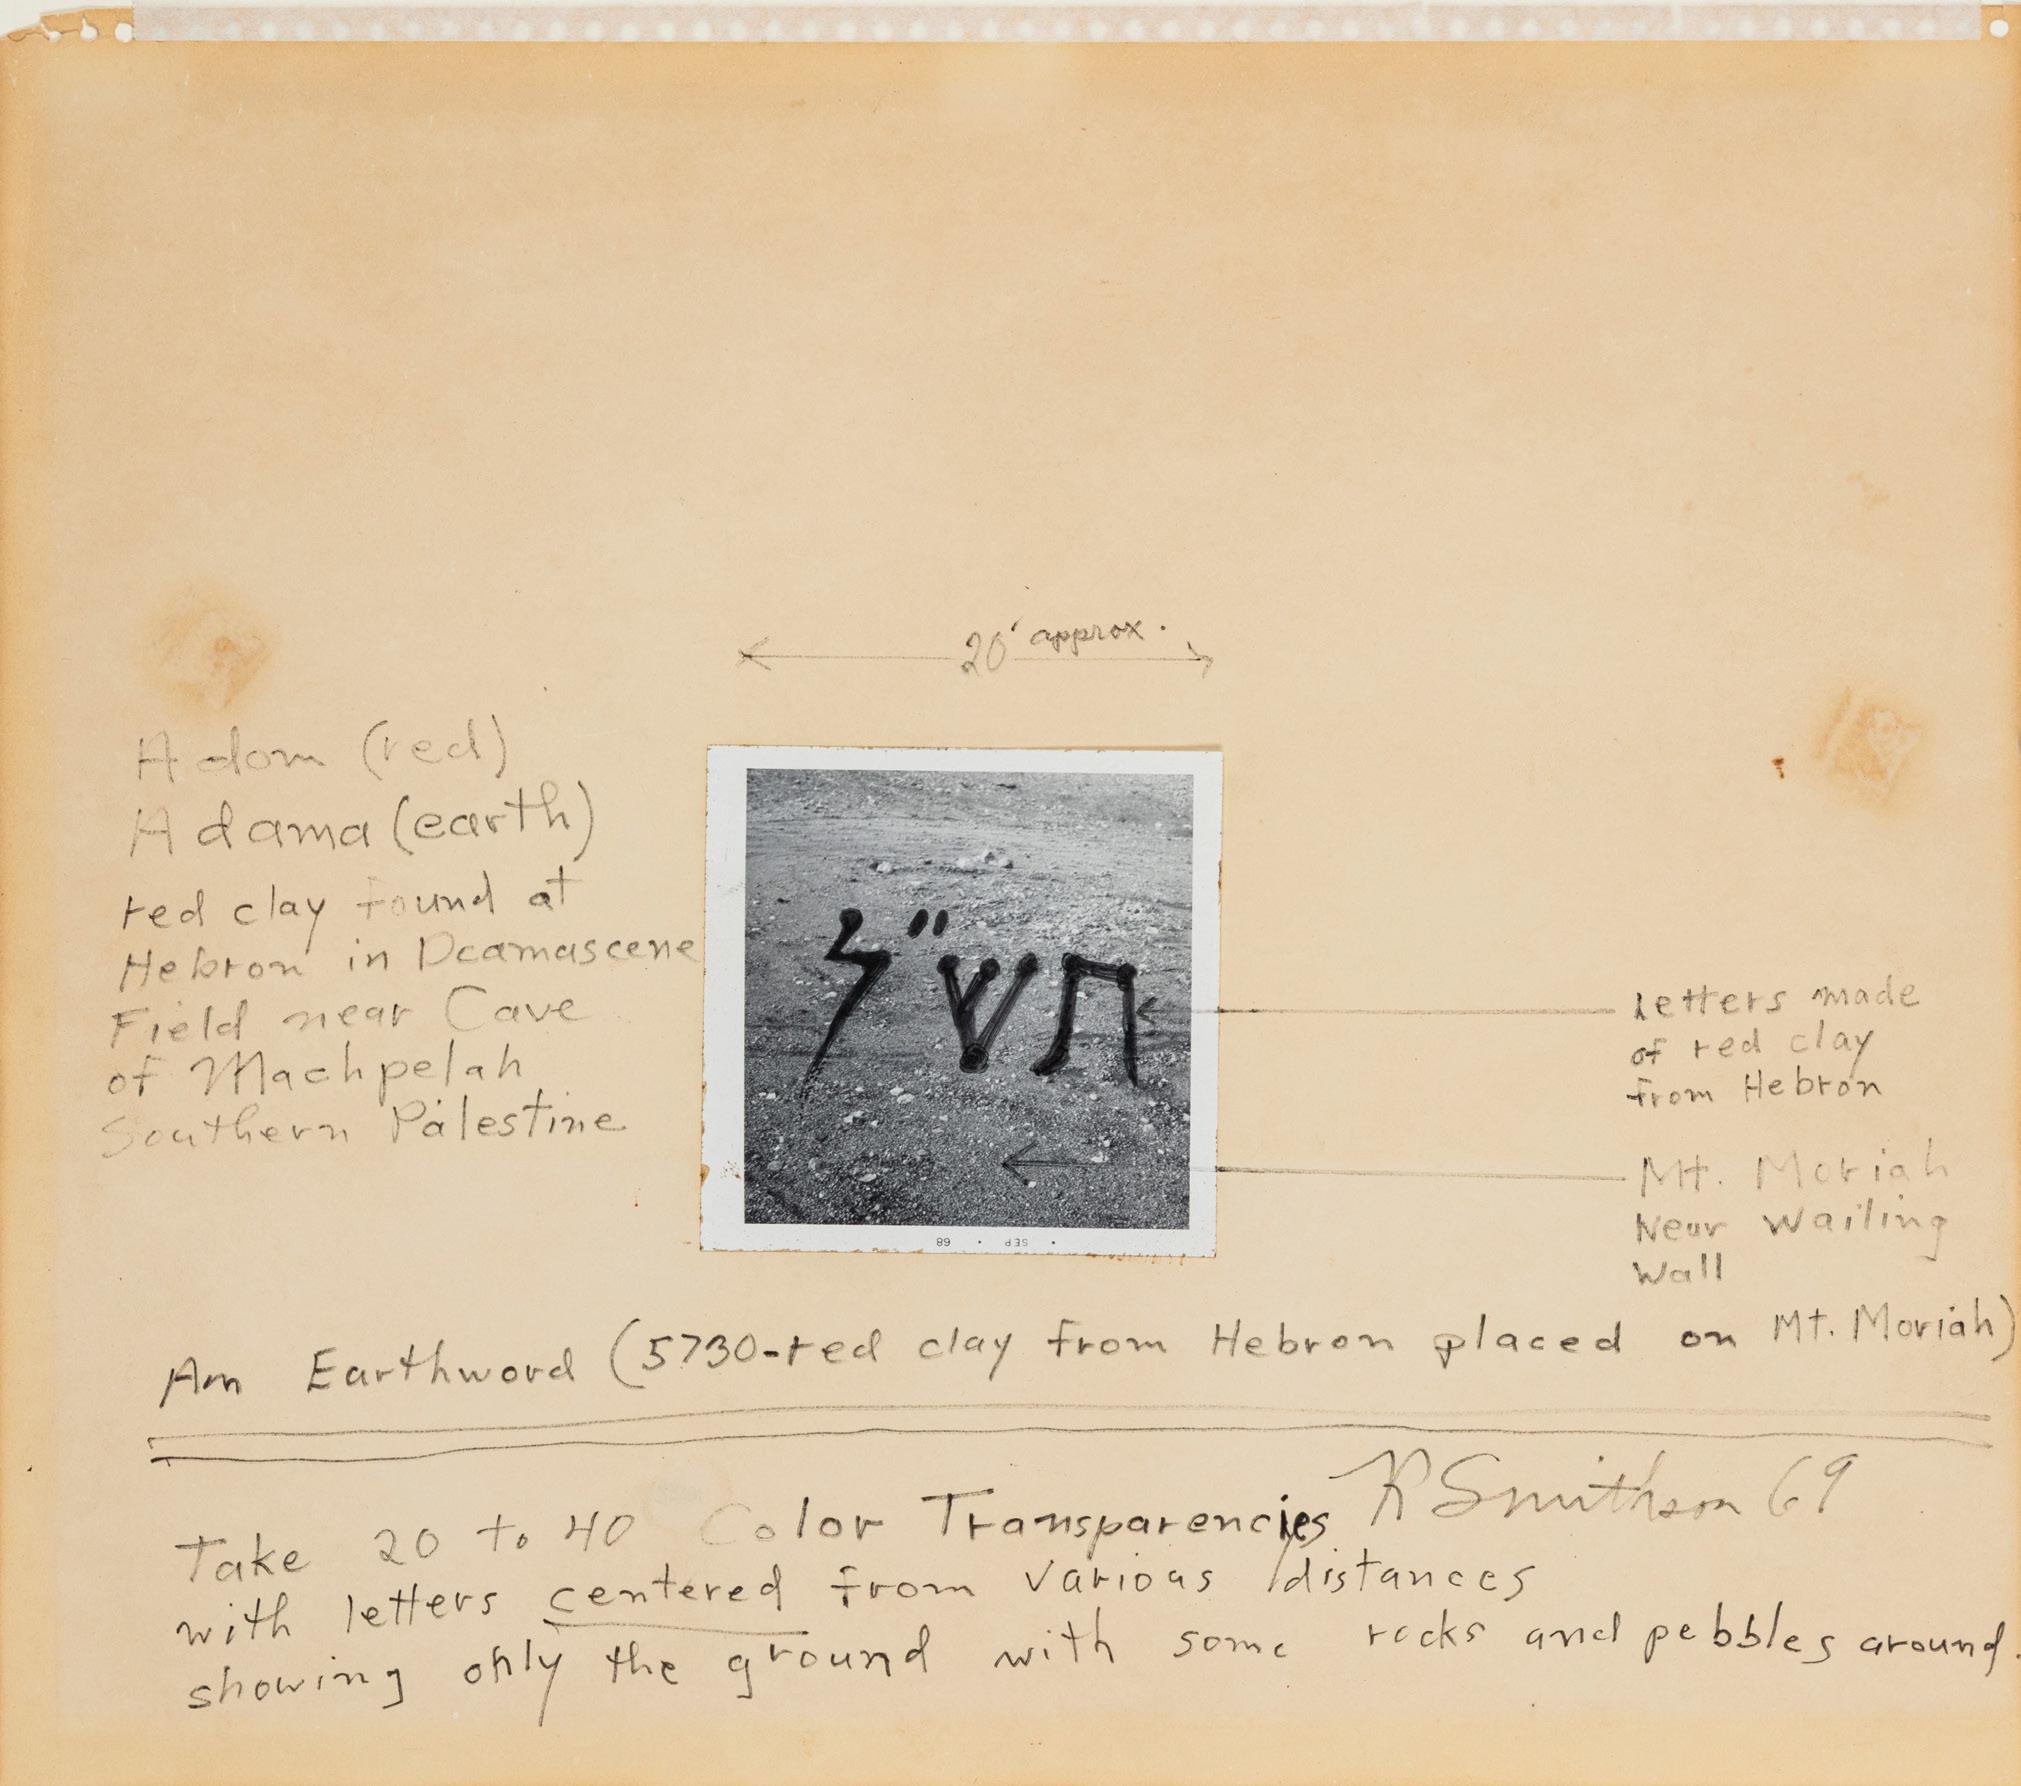 20' approx.
Adom (red)
Adama (earth)
red clay found at
Hebron in Dcamascene
Field near Cave
of Machpelah
Southern Palestine
תש״ל
letters made
of red clay
from Hebron
Mt. Moriah
Near Wailing
Wall
• SEP • 68
An Earthword (5730-red clay from Hebron placed on Mt. Moriah)
R Smithson 69
Take 20 to 40 Color Transparencies
with letters centered from various distances
showing only the ground with some rocks and pebbles around.